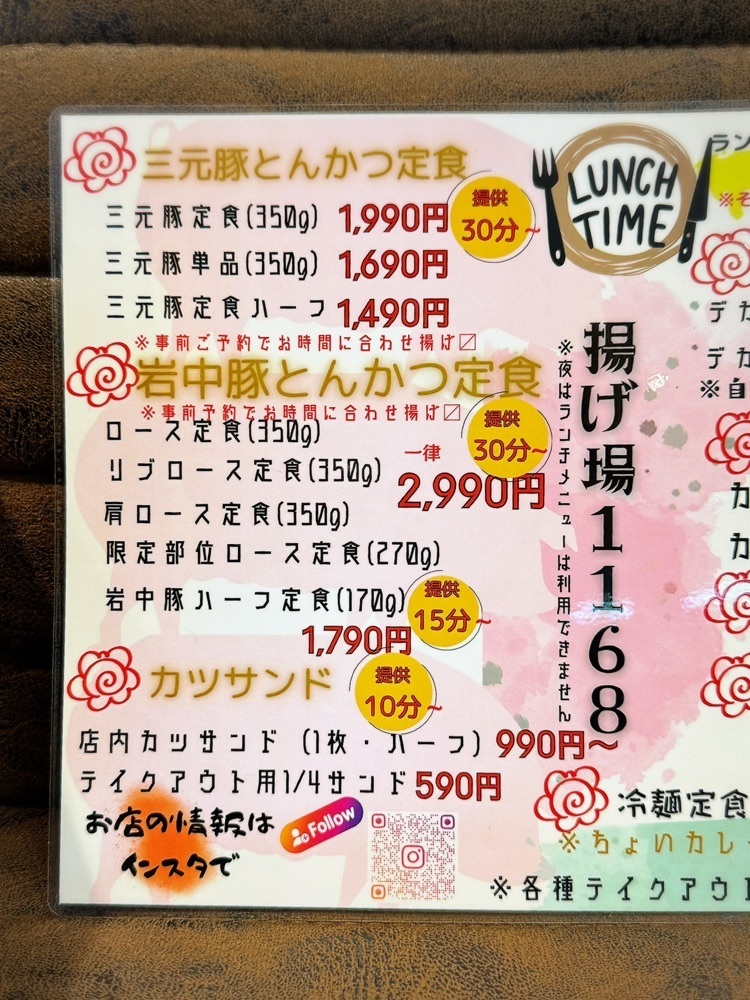 三元豚とんかつ定食
三元豚定食(350g) 1,990円
提供
30分~
三元豚単品(350g) 1,690円
三元豚定食ハーフ 1,490円
※事前ご予約でお時間に合わせ揚げ〼
岩中豚とんかつ定食
※事前予約でお時間に合わせ揚げ〼
提供
30分~
ロース定食(350g)
リブロース定食(350g)
一律
2,990円
肩ロース定食(350g)
限定部位ロース定食(270g)
岩中豚ハーフ定食(170g)
提供
15分~
1,790円
カツサンド
提供
10分~
店内カツサンド (1枚・ハーフ) 990円~
テイクアウト用1/4サンド 590円
お店の情報は
インスタで
Follow
LUNCH
TIME
揚げ場1168
※夜はランチメニューは利用できません
ラン
※そ
デカ
デカ
※自
カ
カ
冷麺定食
※ちょいカレー
※各種テイクアウト